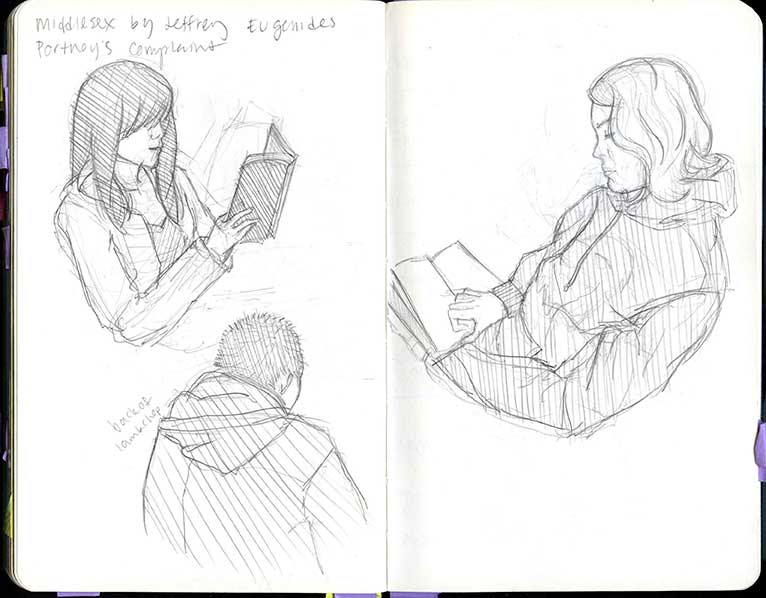 Middlesex by Jeffrey Eugenides
Portnoy's Complaint
back of
lambchop